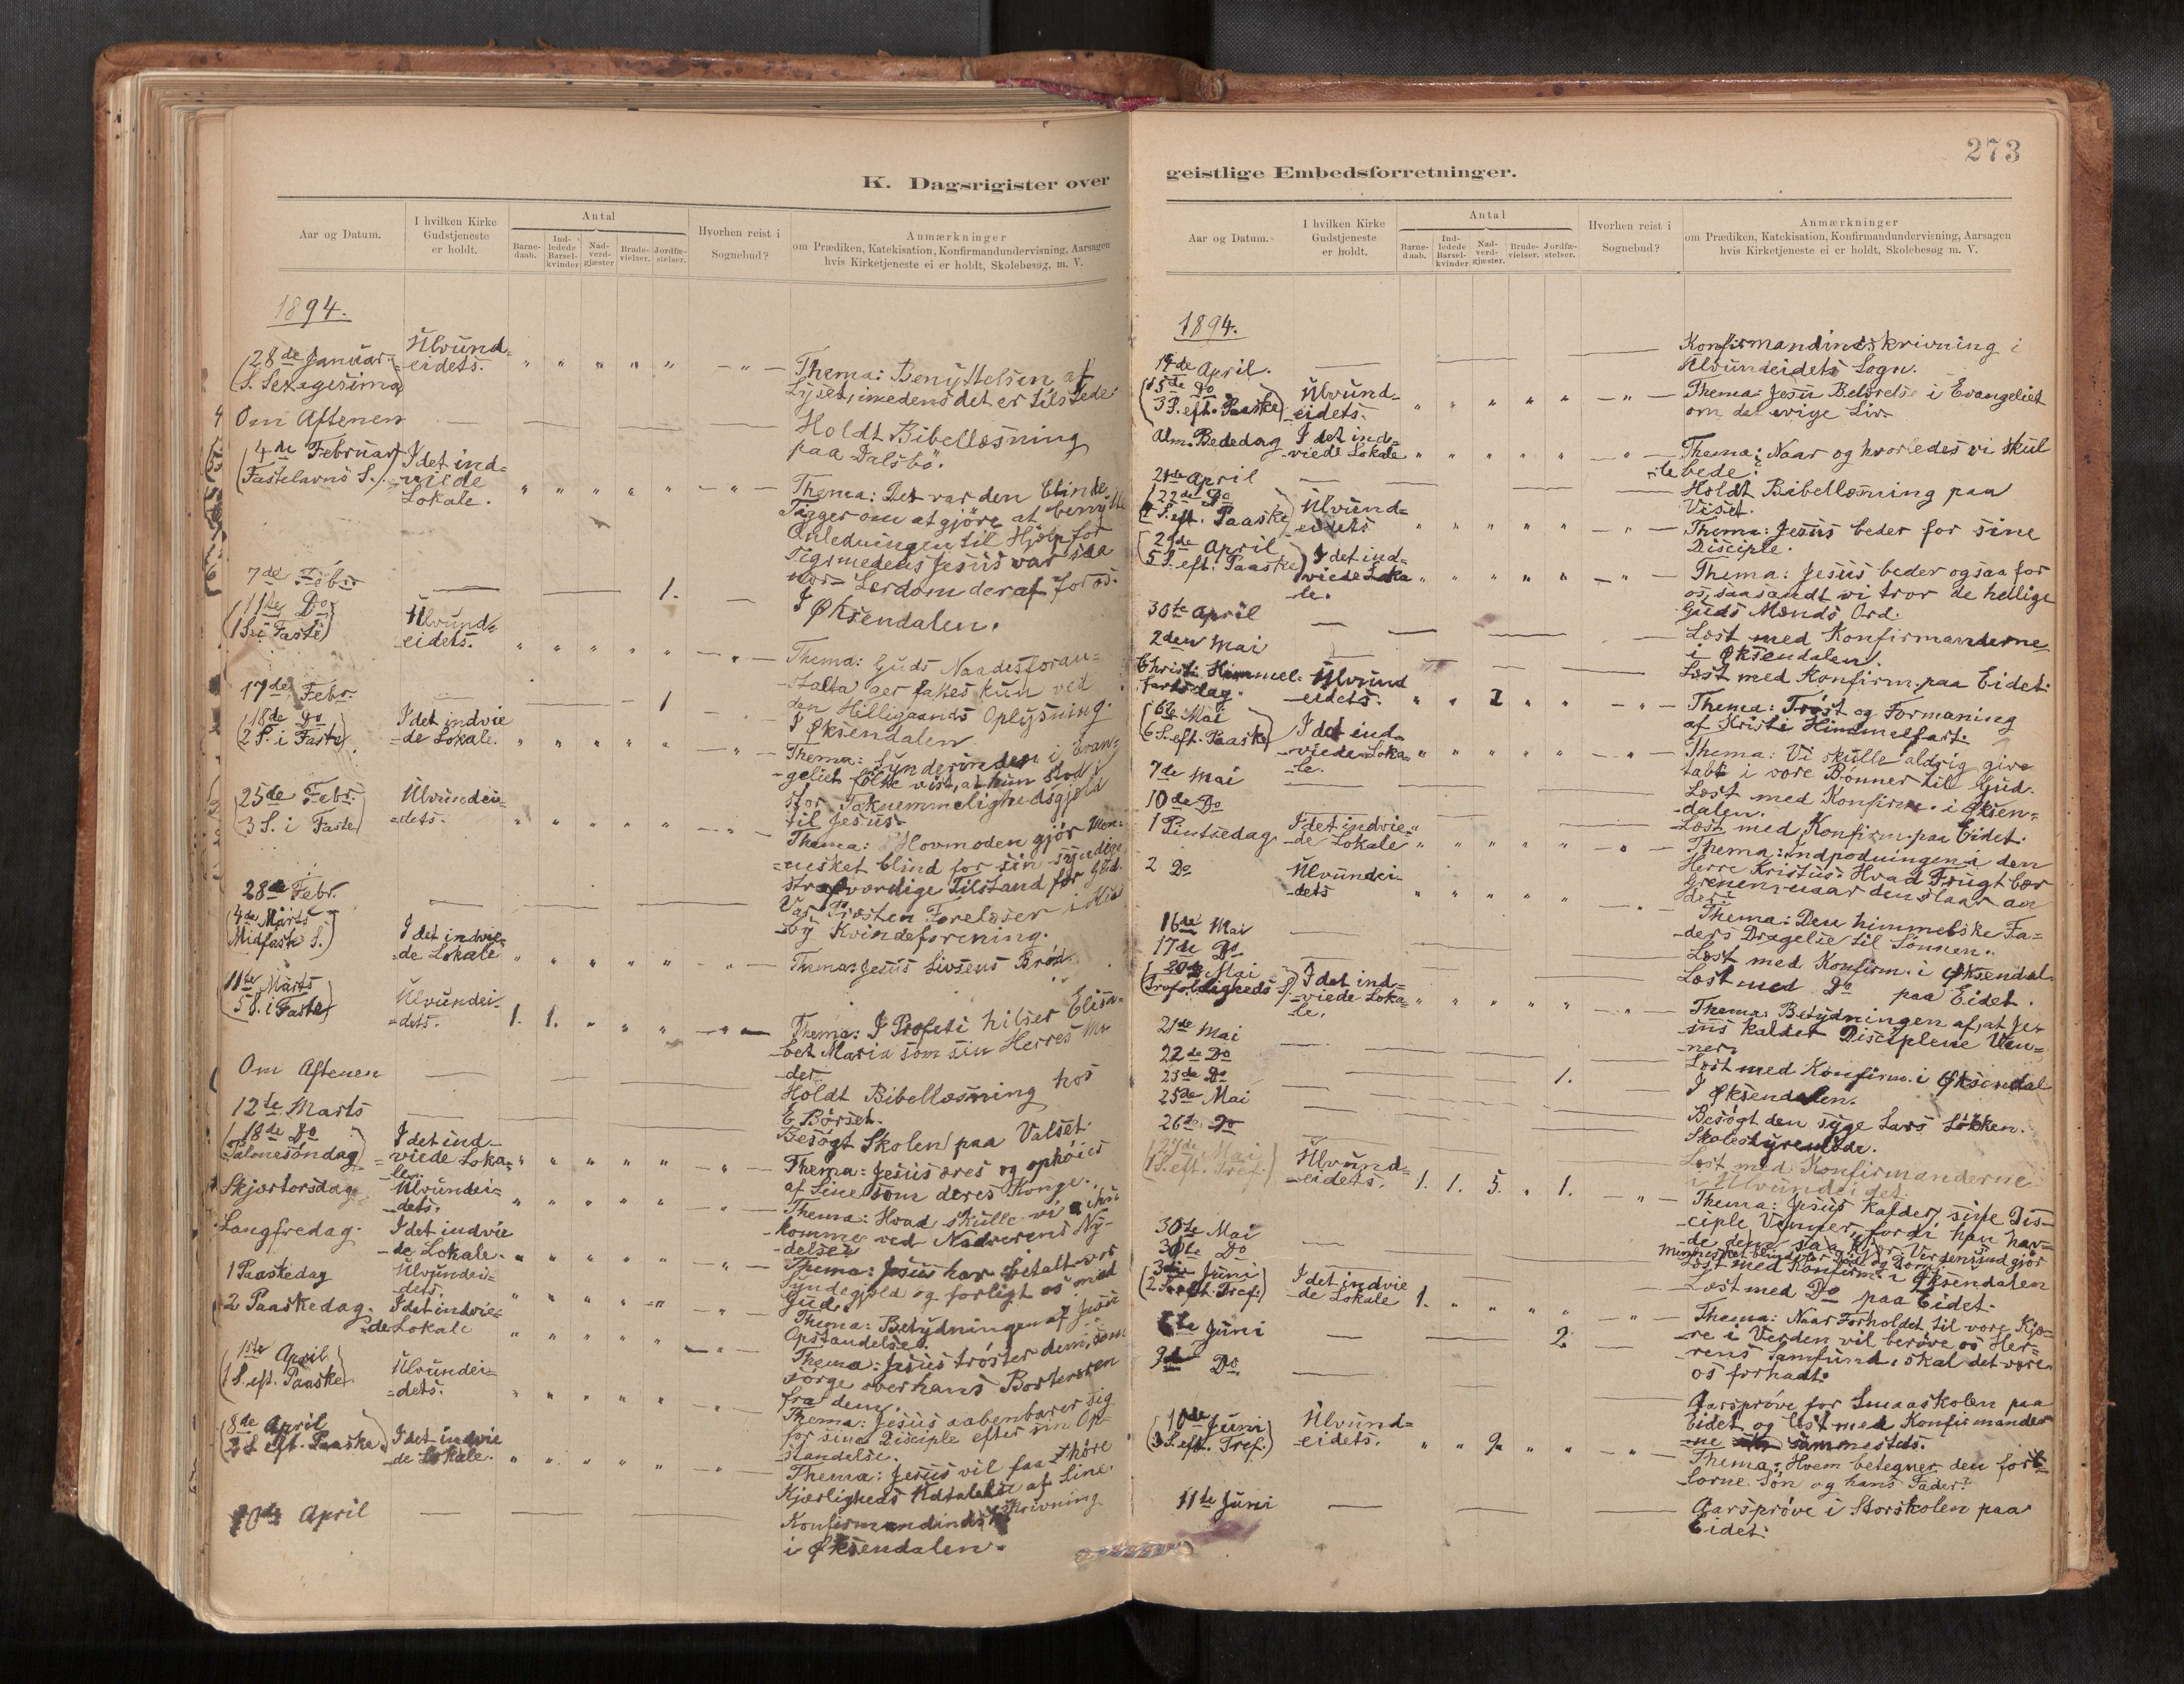 K. Dagsrigister over
Aar og Datum.
I hvilken Kirke
Gudstjeneste
er holdt.
Antal
Barne-
daab.
Ind-
ledede
Barsel-
kvinder
Nad-
verd-
gjæster.
Brude-
vielser.
Jordfæ-
stelser.
Hvorhen reist i
Sognebud?
Anmærkninger
om Prædiken, Katekisation, Konfirmandundervisning, Aarsagen
hvis Kirketjeneste ei er holdt, Skolebesøg, m. V.
1894.
28de Januar
S. Sexagesima
Ulvund=
eidets.
Thema: Benyttelsen af
Lyset, imedens det er tilstede
Om Aftenen
Holdt Bibellæsning
paa Dalsbö.
4de Februar
Fastelavns S.
I det ind=
viede
Lokale.
Thema: Det var den blinde
Tigger om at gjöre at benytte
Anledningen til Hjælp for
sig, medens Jesus var saa
nær. Lærdom deraf for os.
7de Febr.
1.
I Øksendalen.
11te Do
1 S. i Faste
Ulvund=
eidets.
Thema: Guds Naadesforan=
stalta
den Helligaands Oplysning.
17de Febr.
1
I Øksendalen
18de Do
2 S. i Faste
I det indvie
-de Lokale.
Thema: Synderinden i Evan=
-geliet fölte vist, at hun stod i
stor Taknemmelighedsgjæld
til Jesus.
25de Febr.
3 S. i Faste
Ulvundei=
=dets.
Thema: Hovmoden gjör Men=
=nesket blind for sin syndige
strafværdige Tilstand for Gud.
28de Febr.
Var Præsten Forelæser i Hus
=by Kvindeforening.
4de Marts
Midfaste S.
I det indvie=
=de Lokale
Thema: Jesus Livsens Bröd.
11te Marts
5 S. i Faste
Ulvundei=
=dets.
1. 1.
Thema: I Profeti hilser Elisa=
-bet Maria som sin Herres Mo
-der.
Om Aftenen
Holdt Bibellæsning hos
E. Börset.
12te Marts
Besögt Skolen paa Valset.
18de Do
Palmesöndag
I det ind=
viede Loka=
le.
Thema: Jesus æres og ophöies
af Sine som deres Konge.
Skjærtorsdag
Ulvundei=
-dets.
Thema: Hvad skulle vi
komme ved Nadverens Ny-
-delse
Langfredag.
I det indvie
-de Lokale.
Thema: Jesus har betalt vor
Syndegjæld og forligt os med
Gud.
1 Paaskedag
Ulvundei=
dets.
Thema: Betydningen af Jesu
Opstandelse.
2 Paaskedag.
I det indvie=
=de Lokale
Thema: Jesus tröster dem, som
sörge over hans Borteværen
fra dem.
1ste April
1 S. eft. Paaske
Ulvundei=
=dets.
Thema: Jesus aabenbarer sig
for sine Disciple efter sin Op-
standelse.
8de April
2 S. eft. Paaske
I det indvie
de Lokale.
Thema: Jesus vil faa höre
Kjærligheds Udtalelse af Sine.
10de April
Konfirmandindskrivning
i Øksendalen.
273
geistlige Embedsforretninger.
Aar og Datum.
I hvilken Kirke
Gudstjeneste
er holdt.
Antal
Barne-
daab.
Ind-
ledede
Barsel-
kvinder
Nad-
verd-
gjæster.
Brude-
vielser.
Jordfæ-
stelser.
Hvorhen reist i
Sognebud?
Anmærkninger
om Prædiken, Katekisation, Konfirmandundervisning, Aarsagen
hvis Kirketjeneste ei er holdt, Skolebesøg m. V.
1894.
14de April.
Konfirmandindskrivning i
Ulvundeidets Sogn.
15de Do
3 S. eft. Paaske
Ulvund=
eidets.
Thema: Jesu Belærelse i Evangeliet
om det evige Liv.
Alm. Bededag
I det ind=
-viede Lokale
Thema: Naar og hvorledes vi skul
-le bede?
21de April
Holdt Bibellæsning paa
Viset.
22de Do
4 S. eft. Paaske
Ulvund=
eidets
Thema: Jesus beder for sine
Disciple.
29de April
5 S. eft. Paaske
I det ind=
viede Loka
le.
Thema: Jesus beder ogsaa for
os, saasandt vi tror de hellige
Guds Mænds Ord.
30te April
Læst med Konfirmanderne
i Øksendalen.
2den Mai
Læst med Konfirm. paa Eidet.
Christi Himmel-
fartsdag.
Ulvund
-eidets.
2
Thema: Tröst og Formaning
af Kristi Himmelfart.
6te Mai
6 S. eft. Paaske
I det ind=
viede Loka=
-le.
Thema: Vi skulle aldrig give
tabt i vore Bönner til Gud.
7de Mai
Læst med Konfirm. i Øksen=
-dalen.
10de Do
Læst med Konfirm. paa Eidet.
1 Pintsedag
I det indvie=
-de Lokale
Thema: Indpodningen i den
Herre Kristus. Hvad Frugt bær
Grenen, naar den slaar an
der?
2 Do
Ulvundei-
-dets
Thema: Den himmelske Fa=
-ders Dragelse til Sönnen.
16de Mai
Læst med Konfirm. i Øksendal.
17de Do
Læst med Do paa Eidet.
20de Mai
Trefoldigheds S.
I det ind=
-viede Loka=
le.
Thema: Betydningen af, at Je-
sus kalder Disciplene Ven=
-ner.
21de Mai
Læst med Konfirm. i Øksendal
22de Do
1.
I Øksendalen.
23de Do
Besögt den syge Lars Lökken.
25de Mai
Skolestyremöde.
26de Do
Læst med Konfirmanderne
i Ulvundeidet.
27de Mai
1 S. eft. Tref.
Ulvund=
-eidets.
1. 1. 5. 1.
Thema: Jesus kalder sine Dis-
-ciple Venner, fordi han hav=
Mennesket blind for
30te Mai
Læst med Konfirm. i Øksendalen
Do
Læst med Do paa Eidet.
3die Juni
2 S. eft. Tref.
I det indvie
de Lokale
1.
Thema: Naar Forholdet til vore Kjæ=
re i Verden vil beröve os Her=
rens Samfund, skal det være
os forhadt.
6te Juni
2
9de Do
Aarspröve for Smaaskolen paa
Eidet og læst med Konfirmander
-ne sammesteds.
10de Juni
3 S. eft. Tref.
Ulvund=
-eidets.
9
Thema: Hvem betegner den fort=
-lorne Sön og hans Fader?
11te Juni
Aarspröve i Storskolen paa
Eidet.